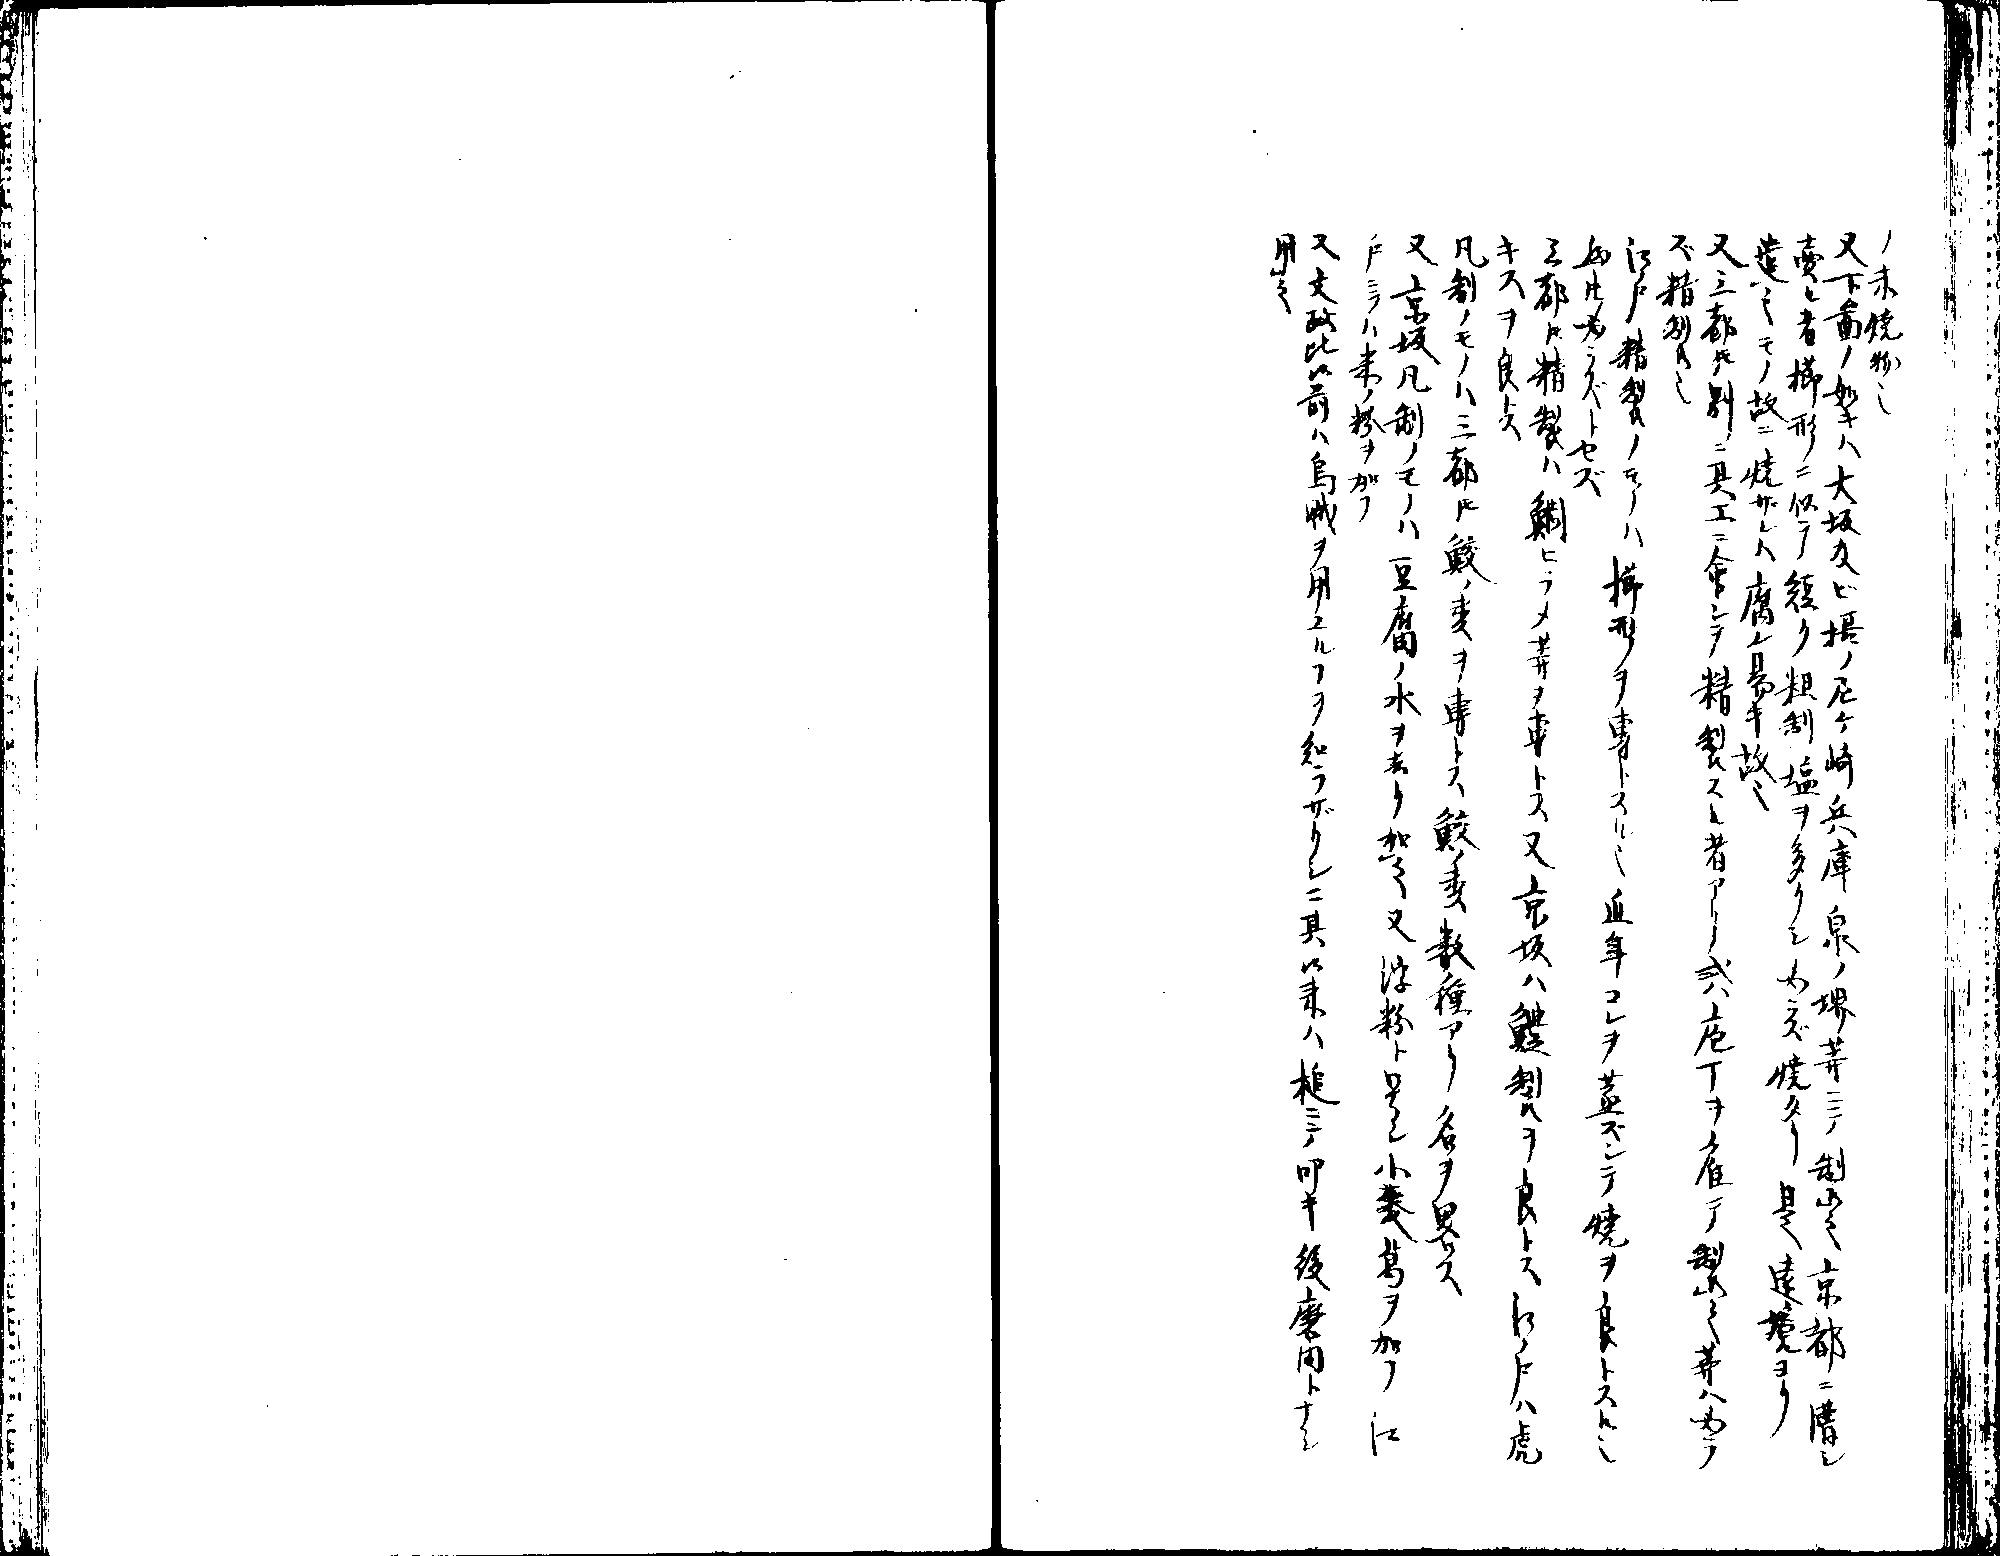 ノ未焼物也
又下圖ノ如キハ大坂及ビ摂ノ尼ケ崎兵庫泉ノ堺等ニテ制之京都ニ購シ
賣ル者櫛形ニ似テ短ク粗制塩ヲ多クシ必ズ焼タリ是遠境ヨリ
遣之モノ故ニ焼ザレハ腐レ易キ故也
又三都トモ別ニ其工ニ命シテ精製スル者アリ或ハ庖丁ヲ雇テ製之等ハ必ラ
ズ精製也
江戸精製ノモノハ櫛形ヲ専トスル也近年コレヲ蒸ズシテ焼ヲ良トスル也
三都トモ精製ハ鯛ヒラメ等ヲ専トス又京坂ハ鱧製ヲ良トス江戸ハ虎
キスヲ良トス
凡制ノモノハ三都トモ鮫ノ類ヲ専トス鮫ノ類数種アリ名ヲ異ニス
又京坂凡制ノモノハ豆腐ノ水ヲ去リ加之又浮粉ト号シ小麦葛ヲ加フ江
戸ニテハ米ノ粉ヲ加フ
又文政比以前ハ烏賊ヲ用ユルヿヲ知ラザリシニ其以来ハ槌ニテ叩キ後磨肉トナシ
用之